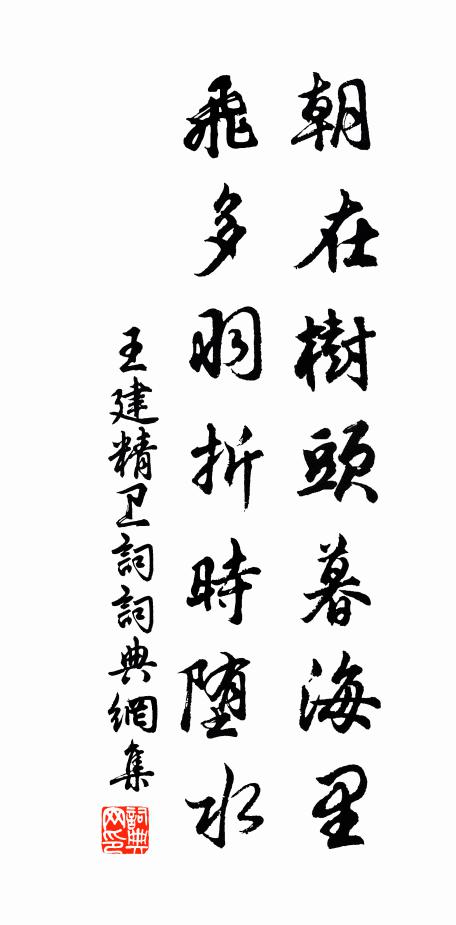 朝在樹頭暮海里
飛多羽折時堕水
王建精卫詞詞典網集
詞典网印